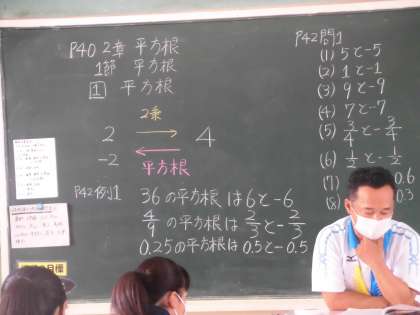 P40 2章 平方根
1節 平方根
1 平方根
2乗
2 4
-2
平方根
P42例1 36の平方根は6と-6
4/9の平方根は2/3と-2/3
0.25の平方根は0.5と-0.5
P42問1
(1) 5と-5
(2) 1と-1
(3) 9と-9
(4) 7と-7
(5) 3/4と-3/4
(6) 1/2と-1/2
(7) 0.6
(8) 0.3